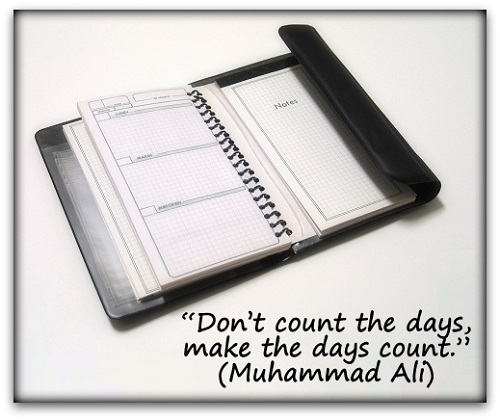 Notes
“Don’t count the days,
make the days count.”
(Muhammad Ali)